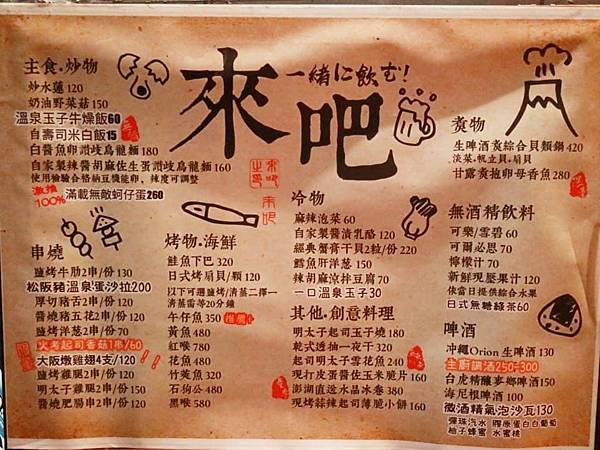 來吧
一緒に飲む!
主食.炒物
炒水蓮 120
奶油野菜菇 150
溫泉玉子牛燥飯60
自壽司米白飯15
白醬魚卵讃岐烏龍麵 160
自家製辣醬胡麻佐生蛋讃岐烏龍麵 160
使用檢驗合格納豆機能卵, 辣度可調整
激推100% 滿載無敵蚵仔蛋260
串燒
鹽烤牛肋2串/份 130
松阪豬溫泉蛋沙拉200
厚切豬舌2串/份 120
醬燒豬五花2串/份 120
鹽烤洋葱2串/份 70
火烤起司香菇1串/60
大阪燉雞翅4支/120
鹽烤雞腿2串/份 120
明太子雞腿2串/份 150
醬燒肥腸串2串/份 120
烤物.海鮮
鮭魚下巴 320
日式烤扇貝/顆 120
以下可選鹽烤/清蒸二擇一
清蒸需等20分鐘
午仔魚 350 推薦
黃魚 480
紅喉 780
花魚 480
竹莢魚 320
石狗公 480
黑喉 580
冷物
麻辣泡菜 60
自家製醬漬乳酪 120
經典蟹膏干貝2粒/份 220
鱈魚肝洋葱 150
辣胡麻涼拌豆腐 70
一口溫泉玉子30
其他.創意料理
明太子起司玉子燒 180
乾式透抽一夜干 320
起司明太子雪花魚 240
現打皮蛋醬佐玉米脆片 160
澎湖直送水晶冰卷 380
現烤蒜辣起司薄脆小餅 160
煮物
生啤酒煮綜合貝類鍋 420
淡菜.帆立貝.扇貝
甘露煮抱卵母香魚 280
無酒精飲料
可樂/雪碧 60
可爾必思 70
檸檬汁 70
新鮮現壓果汁 120
依當日提供綜合水果
日式無糖綠茶60
啤酒
沖繩Orion 生啤酒 130
主廚調酒250-300
台虎精釀爹鄉啤酒150
海尼根啤酒 100
微酒精氣泡沙瓦130
彈珠汽水 膠原蛋白白葡萄
柚子蜂蜜 水蜜桃